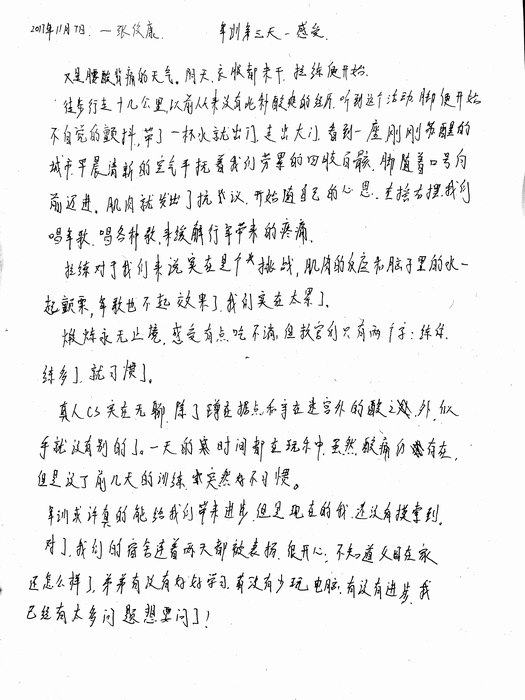 2017年11月7日. 一张俊康. 军训第三天—感受.
又是腰酸背痛的天气。阴天，衣服都未干，拉练便开始.
徒步行走十几公里，以前从来没有此种酸爽的经历，听到这个活动，脚便开始
不自觉的颤抖，带了一杯水就出门，走出大门，看到一座刚刚苏醒的
城市，早晨清新的空气干扰着我们劳累的四肢百骸，脚随着口号向
前迈进。肌肉就发出了抗议，开始随自己的心思，左捨右摆，我们
唱军歌，唱各种歌，来缓解行军带来的疼痛.
拉练对于我们来说实在是个大挑战，肌肉的反应和脑子里的水一
起颤栗，军歌也不起效果了，我们实在太累了。
煅炼永无止境，感受有点吃不消，但教官们只有两个字：练练.
练多了，就习惯了。
真人CS实在无聊，除了蹲在据点和守在迷宫外的酸之外，似
乎就没有别的了。一天的时间都在玩乐中，虽然，酸痛仍有存在，
但是误了前几天的训练，突然好不习惯。
军训或许真的能给我们带来进步，但是现在的我，还没有摸索到。
对了，我们的宿舍连着两天都被表扬，很开心，不知道父母在家
还怎么样了，弟弟有没有好好学习，有没有少玩电脑，有没有进步，我
已经有太多问题想要问了！